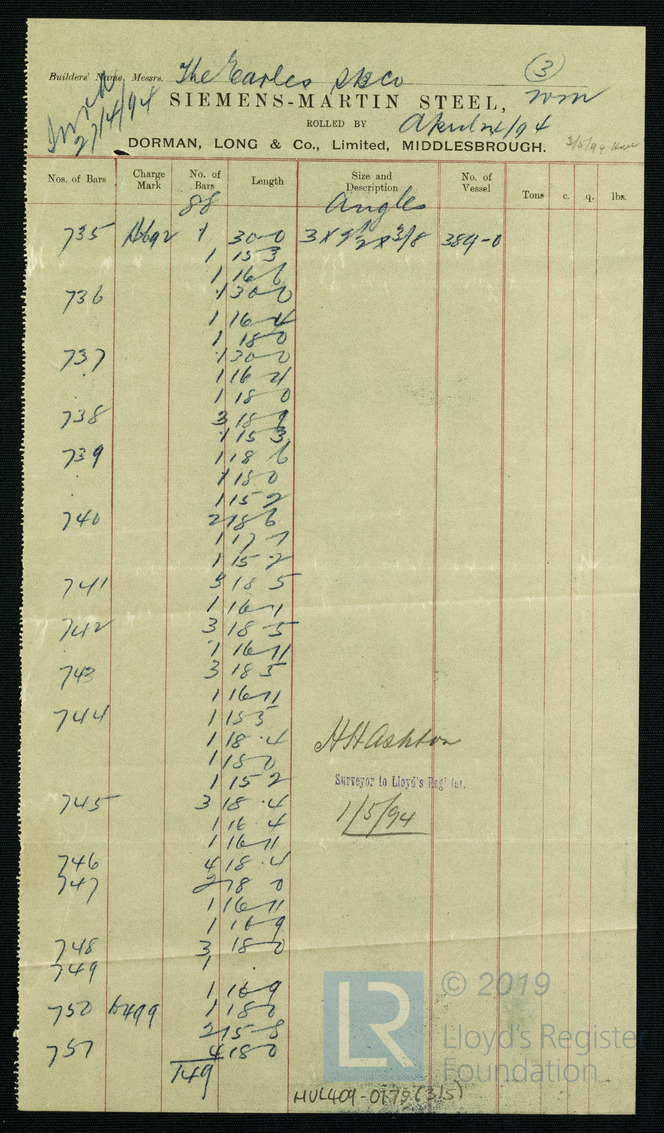 Builders' Name, Messrs. The Earles SB Co
(3)
27/4/94
SIEMENS-MARTIN STEEL,
ROLLED BY
April 24/94
DORMAN, LONG & Co., Limited, MIDDLESBROUGH.
3/5/94
Nos. of Bars Charge Mark No. of Bars Length Size and Description No. of Vessel Tons c. q. lbs.
88 Angles
735 1 30-0 3 x 2 1/2 x 3/8 389-0
1 15 3
1 16 6
736 1 30-0
1 16-4
1 18-0
737 1 30-0
1 16 4
1 18 0
738 3 18-9
1 15 3
739 1 18 6
1 18-0
1 15 2
740 2 18 6
1 17 7
1 15-2
741 3 18 5
1 16-11
742 3 18-5
1 16-11
743 3 18 5
1 16-11
744 1 18 5
1 18-4
HH Ashton
1 18 0
1 15 2
Surveyor to Lloyd's Register.
745 3 18-4
1/5/94
1 16 4
1 16-11
746 4 18-4
747 2 18 0
1 16-11
1 16-9
748 3 18-0
749 1
1 16-9
750 6499 1 18-0
2 15-8
751 4 18-0
149
LR
© 2019
Lloyd's Register
Foundation
HUL409-0179(3/5)